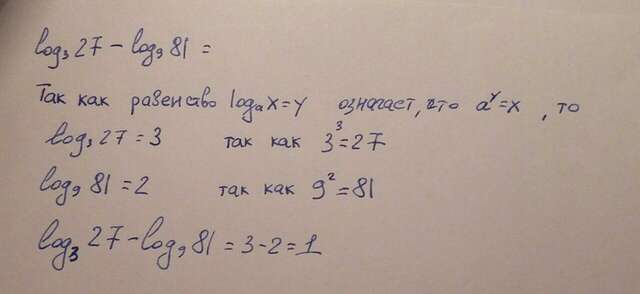 log₃27 – log₉81 =
Так как равенство logₐx=y означает, что aʸ=x , то
log₃27=3 так как 3³=27
log₉81=2 так как 9²=81
log₃27–log₉81=3-2=1